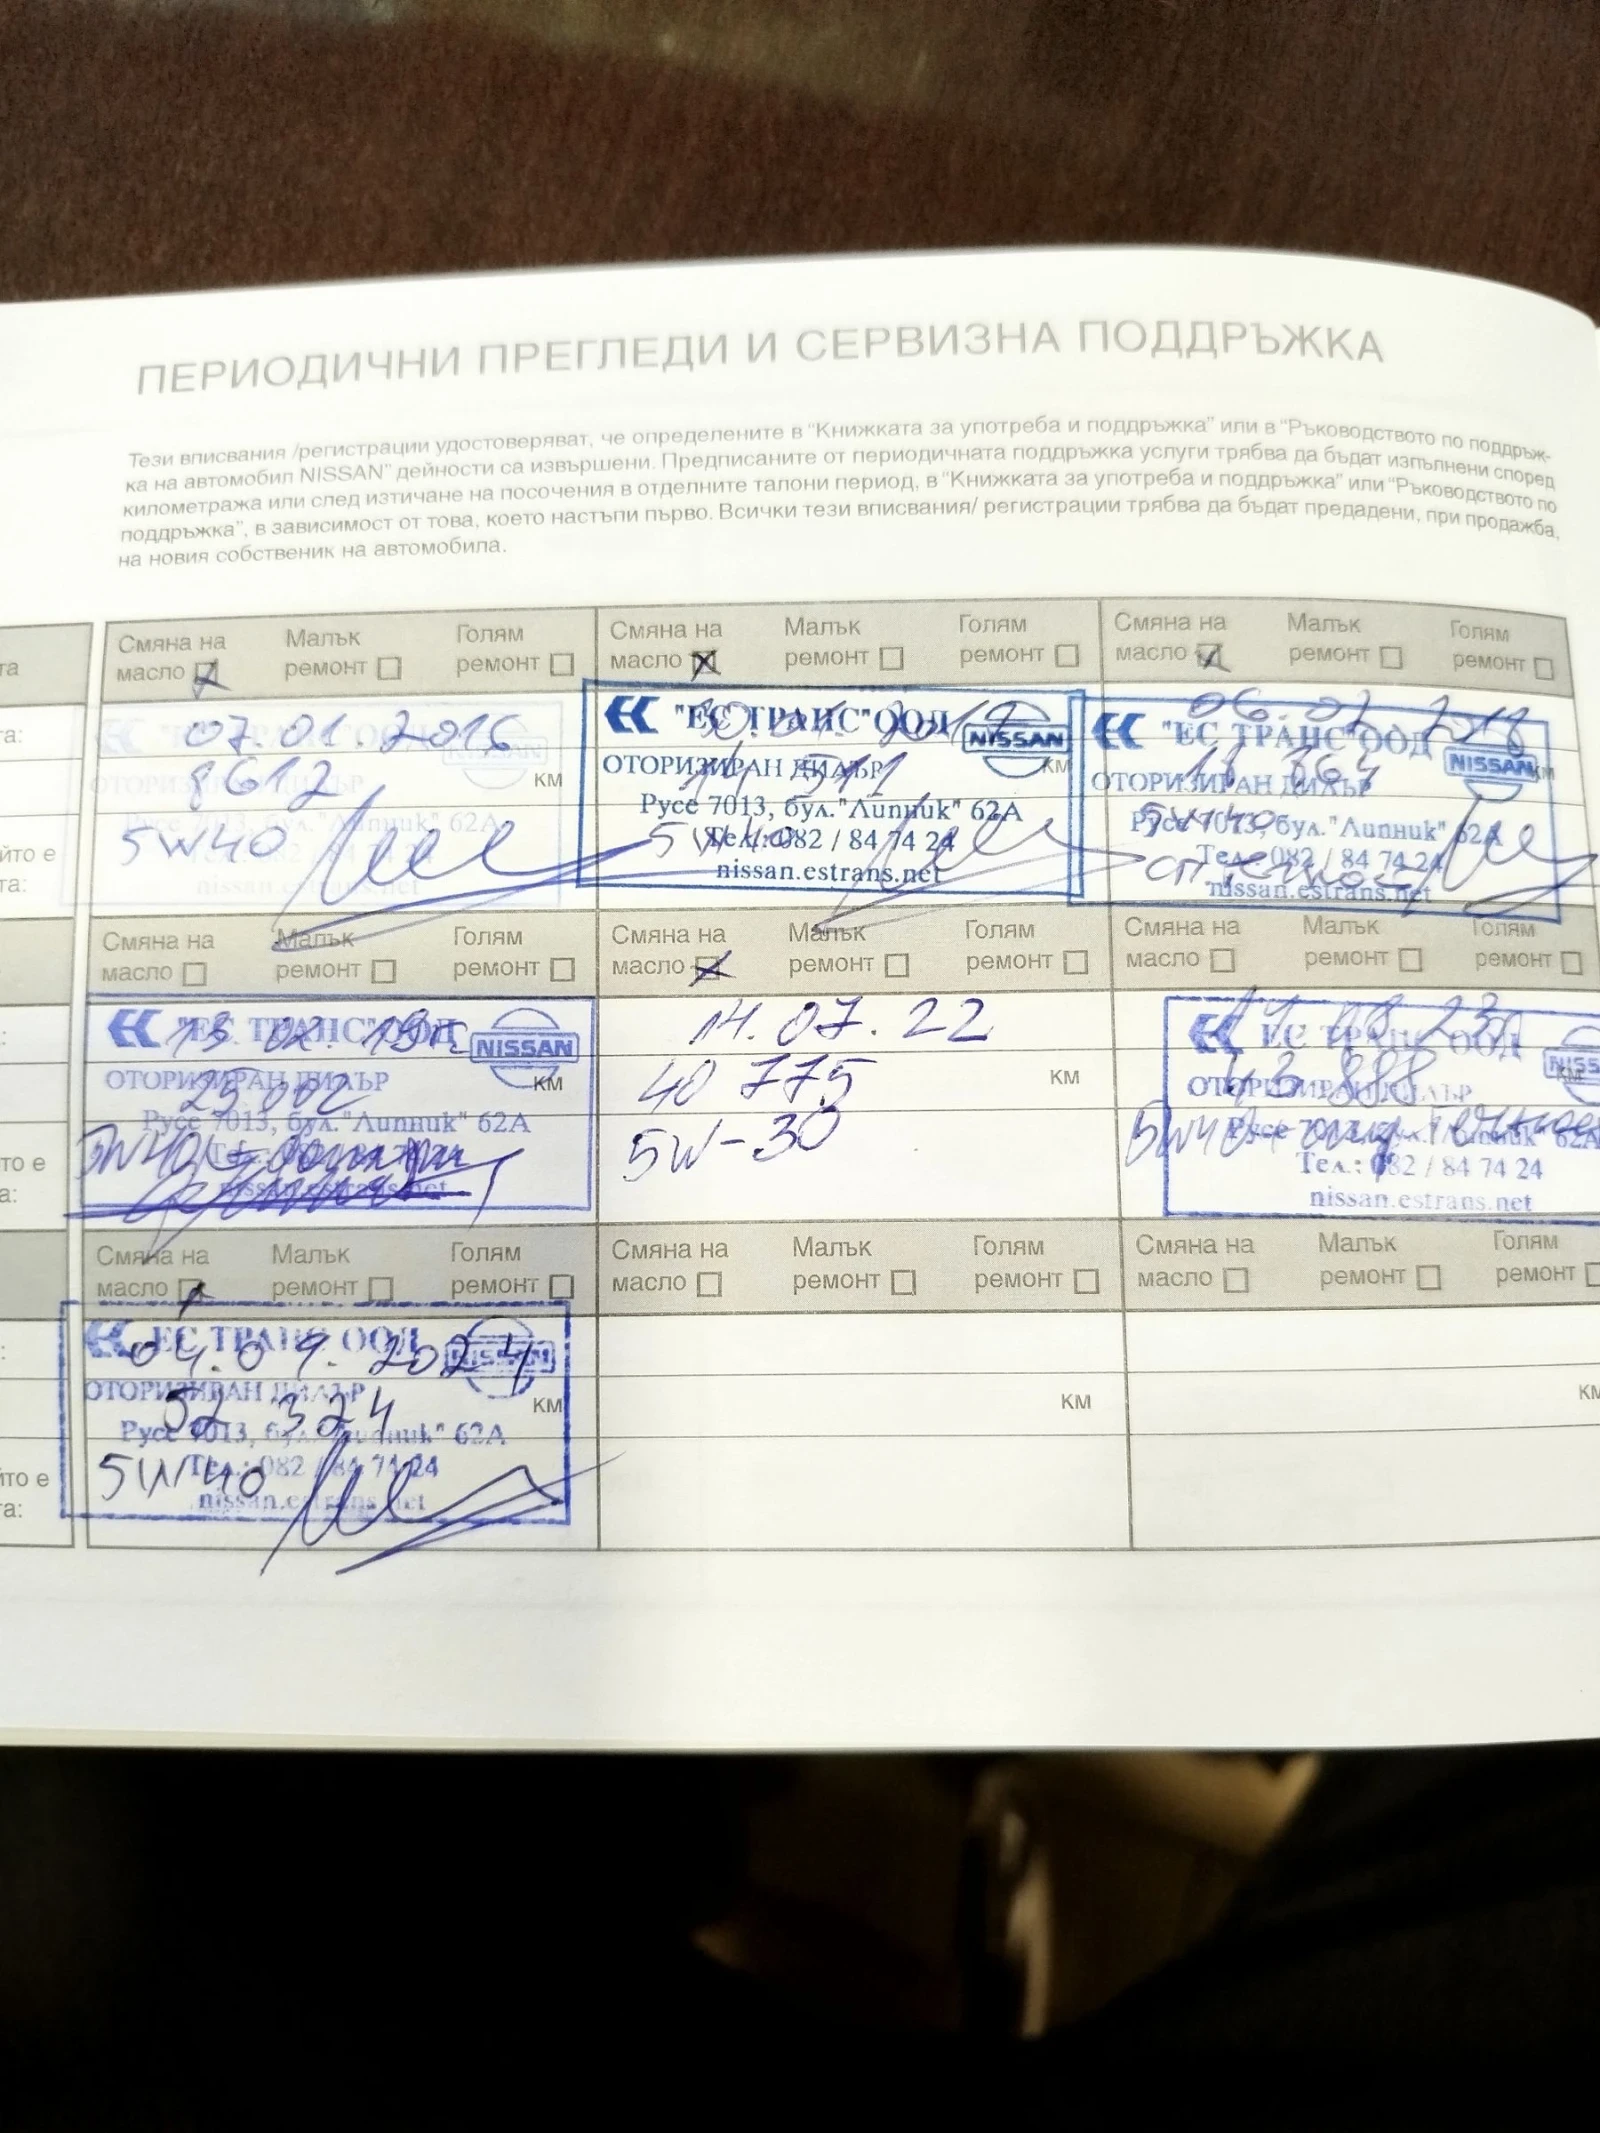 ПЕРИОДИЧНИ ПРЕГЛЕДИ И СЕРВИЗНА ПОДДРЪЖКА
Тези вписвания /регистрации удостоверяват, че определените в "Книжката за употреба и поддръжка" или в "Ръководството по поддръж-
ка на автомобил NISSAN" дейности са извършени. Предписаните от периодичната поддръжка услуги трябва да бъдат изпълнени според
километража или след изтичане на посочения в отделните талони период, в "Книжката за употреба и поддръжка" или "Ръководството по
поддръжка", в зависимост от това, което настъпи първо. Всички тези вписвания/ регистрации трябва да бъдат предадени, при продажба,
на новия собственик на автомобила.
Смяна на масло Малък ремонт Голям ремонт
07.01.2016
8612 км
5W40
"ЕС ТРАНС" ООД NISSAN
ОТОРИЗИРАН ДИЛЪР
Русе 7013, бул. "Липник" 62А
nissan.estrans.net
Смяна на масло Малък ремонт Голям ремонт
"ЕС ТРАНС" ООД NISSAN
ОТОРИЗИРАН ДИЛЪР
км
Русе 7013, бул."Липник" 62А
5W40
Тел.: 082 / 84 74 24
nissan.estrans.net
Смяна на масло Малък ремонт Голям ремонт
06.02.2018
"ЕС ТРАНС" ООД NISSAN
ОТОРИЗИРАН ДИЛЪР
км
5W40
Русе 7013, бул."Липник" 62А
Тел.: 082 / 84 74 24
nissan.estrans.net
Смяна на масло Малък ремонт Голям ремонт
13.02.19
"ЕС ТРАНС" ООД NISSAN
ОТОРИЗИРАН ДИЛЪР
25002 км
Русе 7013, бул. "Липник" 62А
5W40
nissan.estrans.net
Смяна на масло Малък ремонт Голям ремонт
14.07.22
40 775 км
5W-30
Смяна на масло Малък ремонт Голям ремонт
ЕС ТРАНС ООД
ОТОРИЗИРАН ДИЛЪР
43 888
5W40
Тел.: 082 / 84 74 24
nissan.estrans.net
Смяна на масло Малък ремонт Голям ремонт
ЕС ТРАНС ООД NISSAN
04.09.2024
ОТОРИЗИРАН ДИЛЪР
52 324 км
Русе 7013, 62А
5W40
Тел.: 082 / 84 74 24
nissan.estrans.net
Смяна на масло Малък ремонт Голям ремонт
км
Смяна на масло Малък ремонт Голям ремонт
км